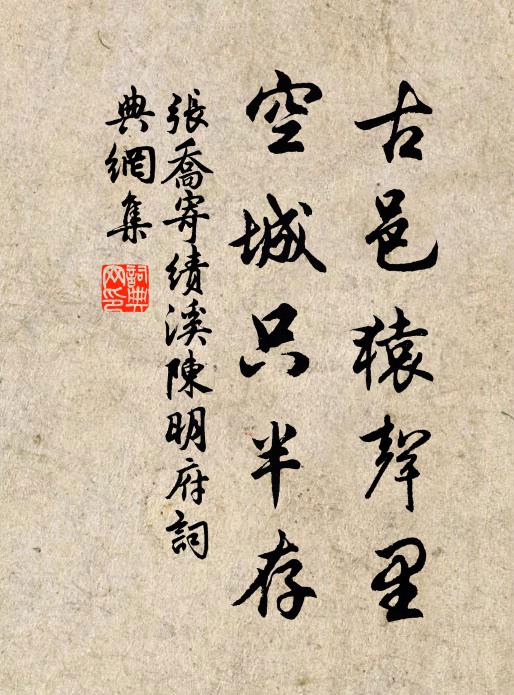 古邑猿聲里
空城只半存
張喬寄績溪陳明府詞
典網集
詞典
网印